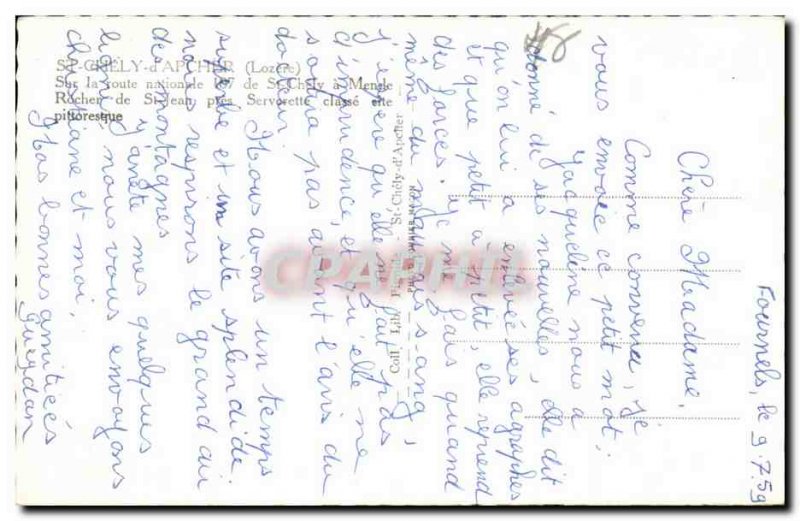 Fournels, le 9.7.59
Chère Madame,
Comme convenu, je
vous envoie ce petit mot:
Jacqueline nous a
donné de ses nouvelles, elle dit
qu'on lui a enlevé ses agraphes
et que petit à petit, elle reprend
des forces. Je m'en fais quand
même du mauvais sang,
j'espère qu'elle ne fait pas
d'imprudence, et qu'elle ne
sortira pas avant l'avis du
docteur.
Nous avons un temps
superbe et un site splendide.
nous respirons le grand air
de montagnes
J'arrête mes quelques
lignes, nous vous envoyons
christiane et moi,
Nos bonnes amitiés
Gueydan
ST-CHELY-d'APCHER (Lozère)
Sur la route nationale 107 de St-Chély à Mende
Rocher de St-Jean près Serverette classé site
pittoresque
Coll. St-Chély-d'Apcher
CPAPHIL